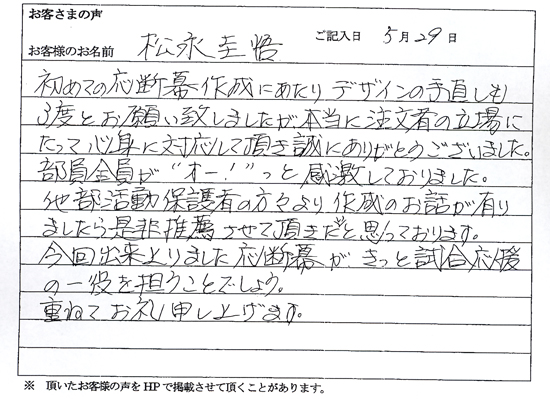 お客さまの声
お客様のお名前 松永圭悟 ご記入日 5月29日
初めての応断幕作成にあたりデザインの手直しも
3度とお願い致しましたが本当に注文者の立場に
たって心身に対応して頂き誠にありがとうございました。
部員全員が“オー!”っと感激しておりました。
他部活動保護者の方々より作成のお話が有り
ましたら是非推薦させて頂きだと思っております。
今回出来上りました応断幕がきっと試合応援
の一役を担うことでしょう。
重ねてお礼申し上げます。
※ 頂いたお客様の声をHPで掲載させて頂くことがあります。